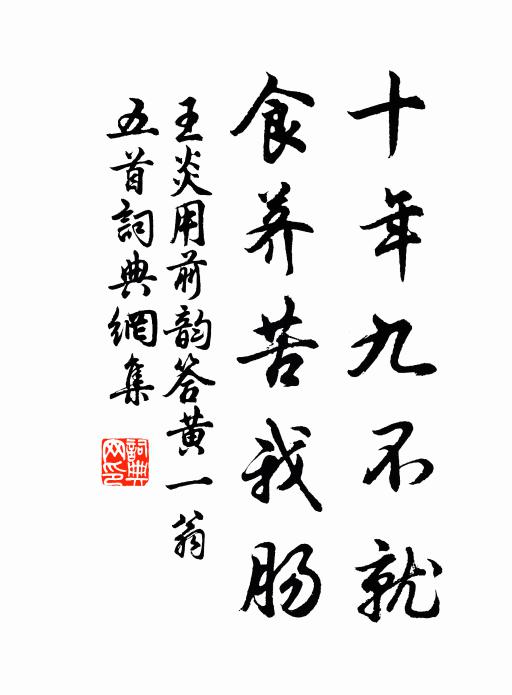 十年九不就
食荠苦我肠
王炎用前韵答黄一翁
五首詞典網集
詞典网印